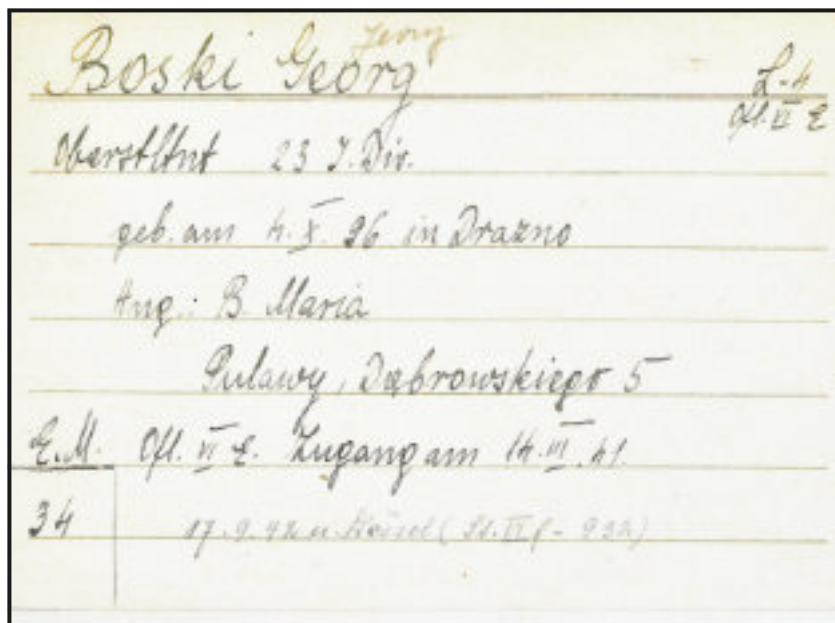 Jerzy
Boski Georg
L-4
Ofl. VI E
Oberstltnt 23 J. Div.
geb. am 4. X. 96 in Drazno
Ang.: B. Maria
Pulawy, Dąbrowskiego 5
E.M. Ofl. VI E. Zugang am 14. III. 41.
34
17. 9. 42 n.